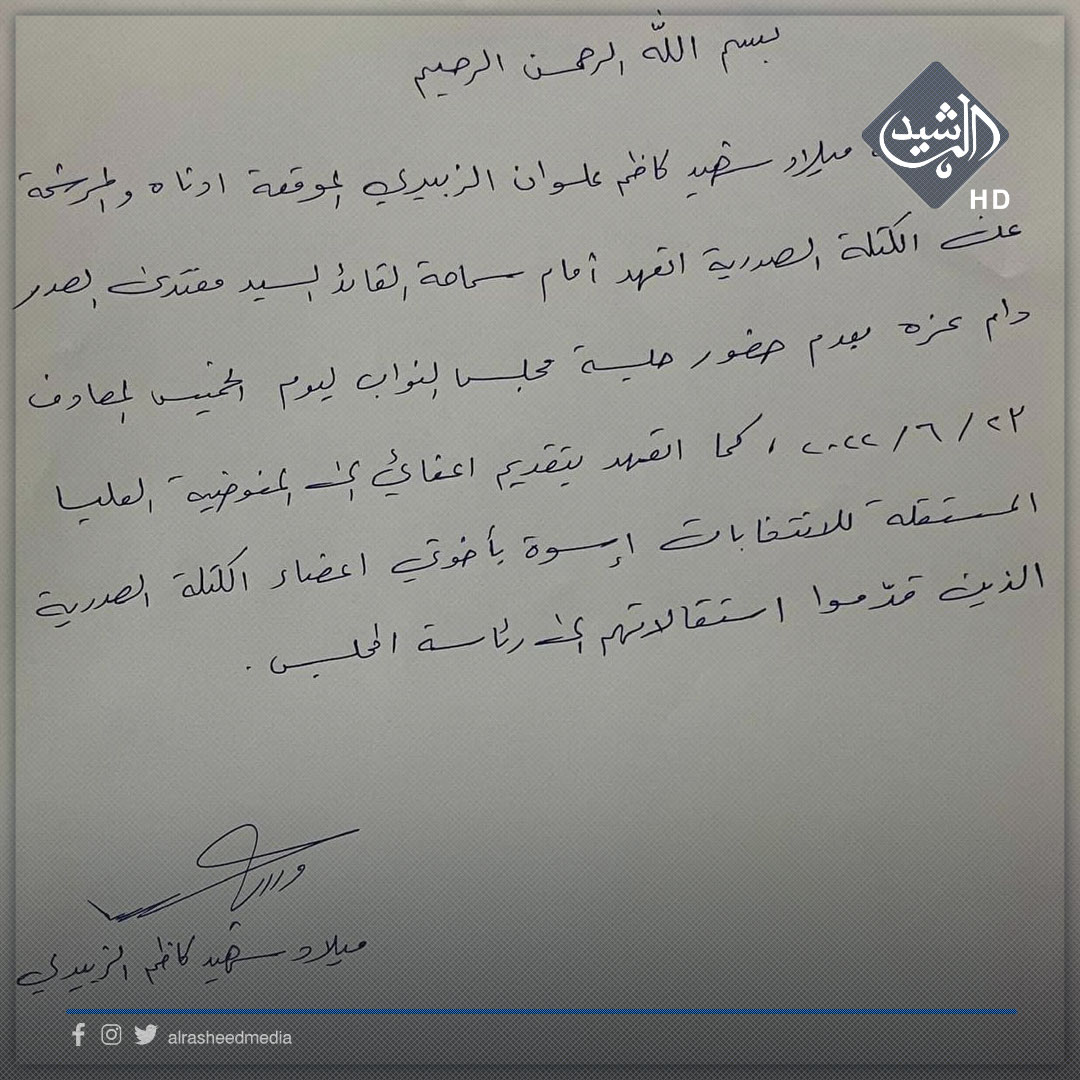 بسم الله الرحمن الرحيم
الرشيد
HD
ميلاد شهيد كاظم علوان الزبيدي الموقعة ادناه والمرشحة
عن الكتلة الصدرية اتعهد أمام سماحة القائد السيد مقتدى الصدر
دام عزه بعدم حضور جلسة مجلس النواب ليوم الخميس المصادف
٢٣ / ٦ / ٢٠٢٢ ، كما اتعهد بتقديم اعفائي الى المفوضية العليا
المستقلة للانتخابات إسوة بأخوتي اعضاء الكتلة الصدرية
الذين قدّموا استقالاتهم الى رئاسة المجلس .
ميلاد شهيد كاظم الزبيدي
alrasheedmedia